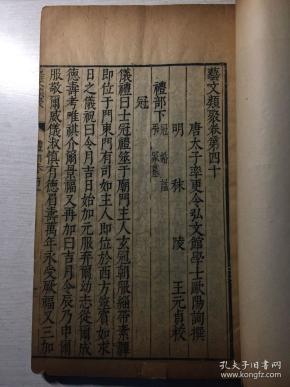 藝文類聚卷第四十
唐太子率更令弘文館學士歐陽詢撰
明秣陵王元貞校
禮部下
冠 婚 謚
弔 冢墓
冠
儀禮曰士冠禮筮于廟門主人玄冠朝服緇帶素韠
即位于門東西面有司如主人即位於西方筮賓如求
日之儀祝曰令月吉日始加元服棄爾幼志從爾成
德壽考唯祺介爾景福又再加曰吉月令辰乃申爾
服敬爾威儀淑慎有德眉壽萬年永受厥福又三加
孔夫子旧书网